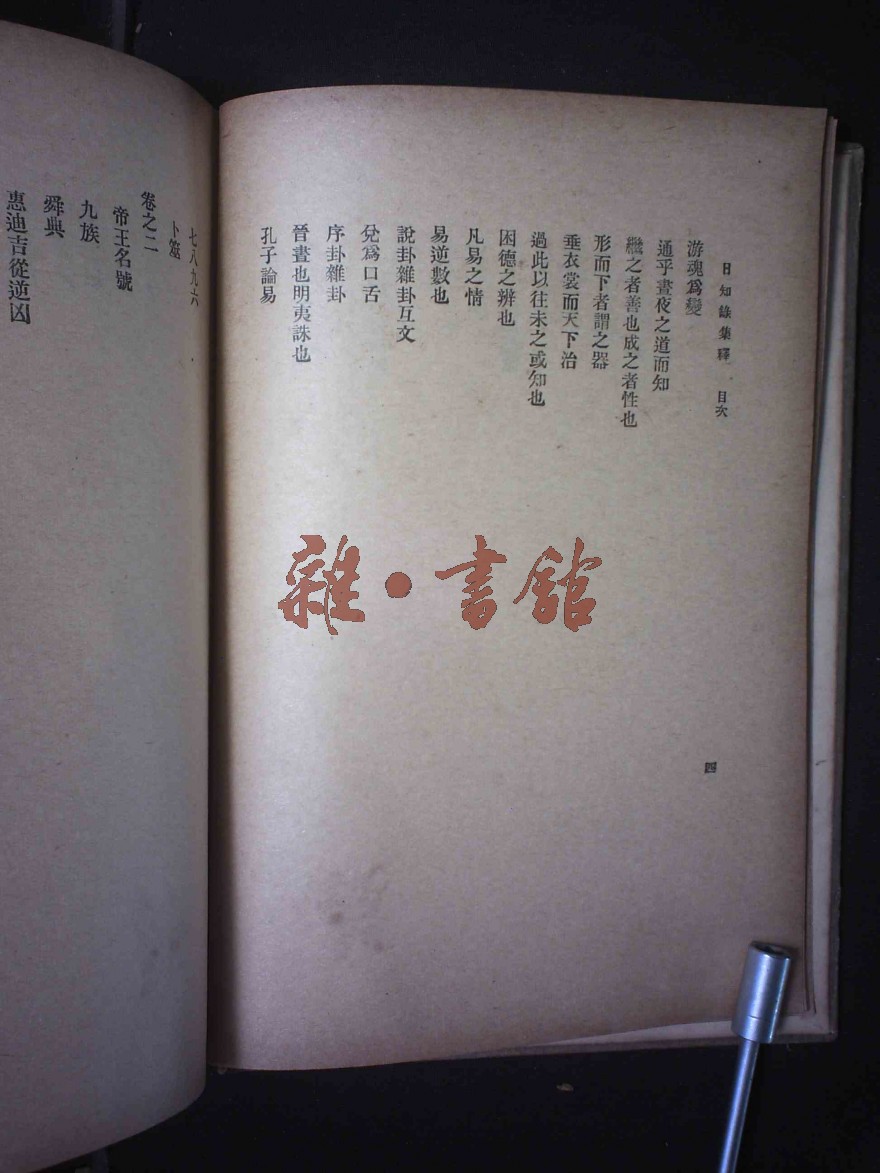 日知錄集釋 目次
四
游魂爲變
通乎晝夜之道而知
繼之者善也成之者性也
形而下者謂之器
垂衣裳而天下治
過此以往未之或知也
困德之辨也
凡易之情
易逆數也
說卦雜卦互文
兌爲口舌
序卦雜卦
晉晝也明夷誅也
孔子論易
七八九六
卜筮
卷之二
帝王名號
九族
舜典
惠迪吉從逆凶
雜·書館